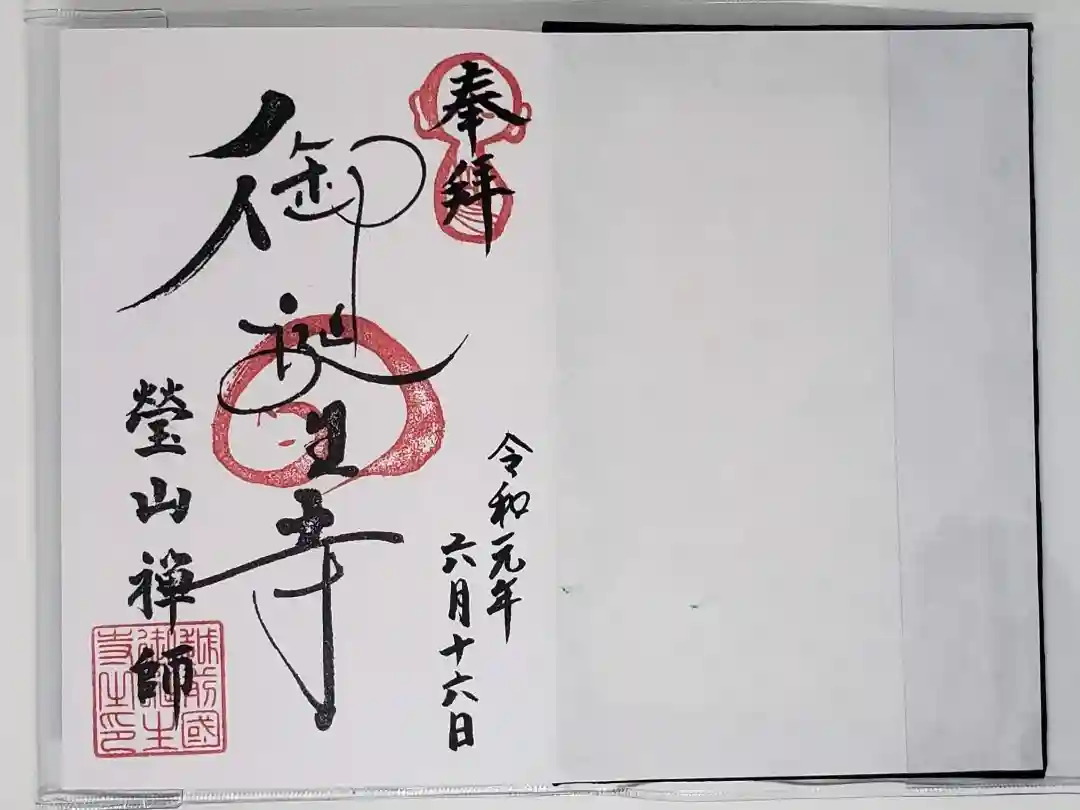 奉拝
令和元年
六月十六日
御誕生寺
瑩山禅師
越前國
御誕生
寺之印